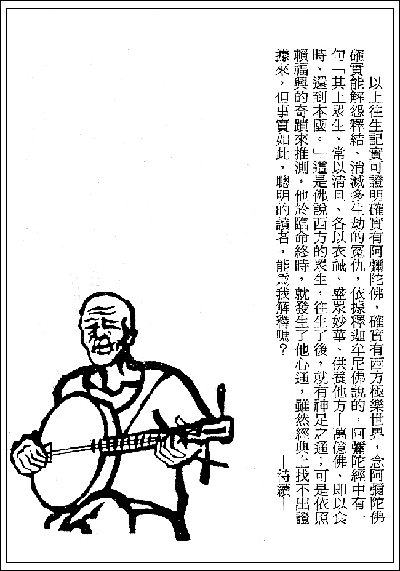 以上往生記實可證明確實有阿彌陀佛，確實有西方極樂世界，念阿彌陀佛
確實能解怨釋結、消滅多生劫的冤仇，依據釋迦牟尼佛說的，阿彌陀經中有一
句「其土眾生、常以清旦、各以衣祴、盛眾妙華、供養他方十萬億佛、即以食
時，還到本國。」這是佛說西方的眾生，往生了後，就有神足之通；可是依照
賴福興的奇蹟來推測，他於臨命終時，就發生了他心通，雖然經典上找不出證
據來，但事實如此，聰明的讀者，能為我解釋嗎？
—待續—